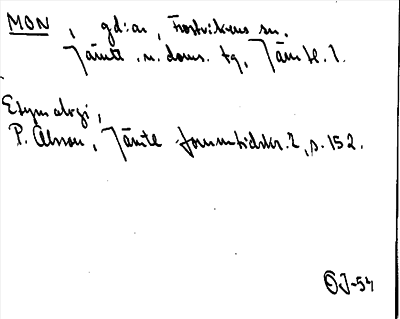 MON, gd:ar, Frostvikens sn.
Jämtl. n. doms. tg, Jämtl. l.
Etymologi,
P. Olsson, Jämtl. fornm.tidskr. 2, s. 152.
OJ-54